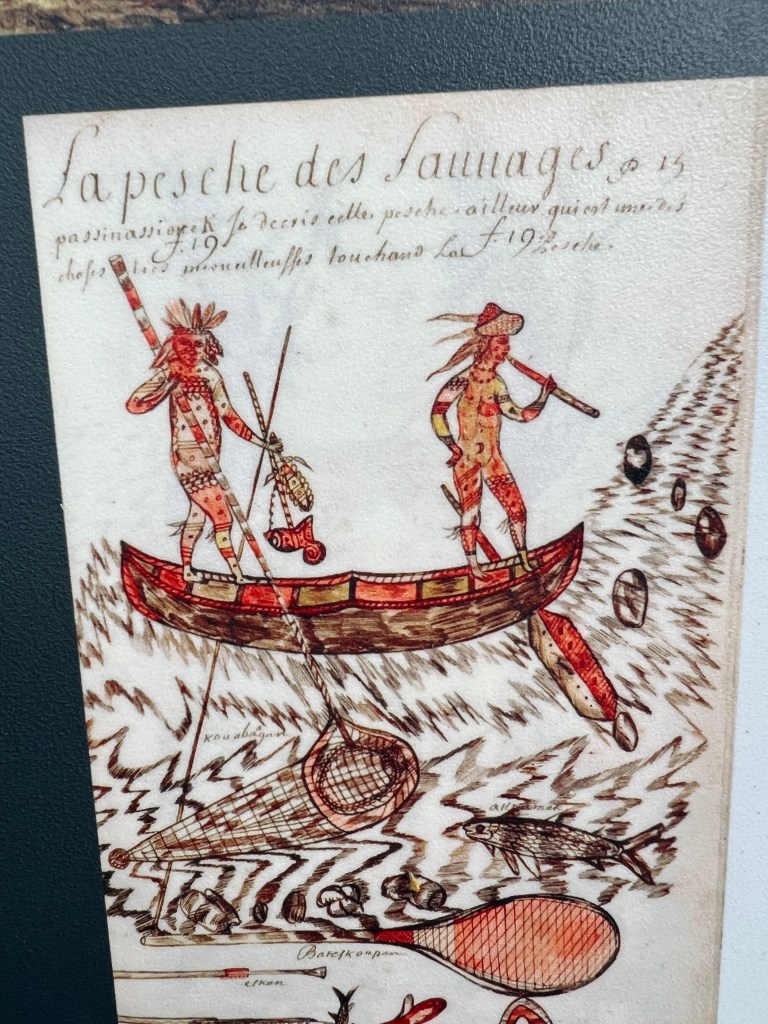 La pesche des Sauuages p 15
passinassiouek Je decris cette pesche ailleur qui est une des
f. 19 f. 19
choses tres merueilleusses touchand La Pesche.
Kouabagan
attikamek
Bateskoupan
eskan